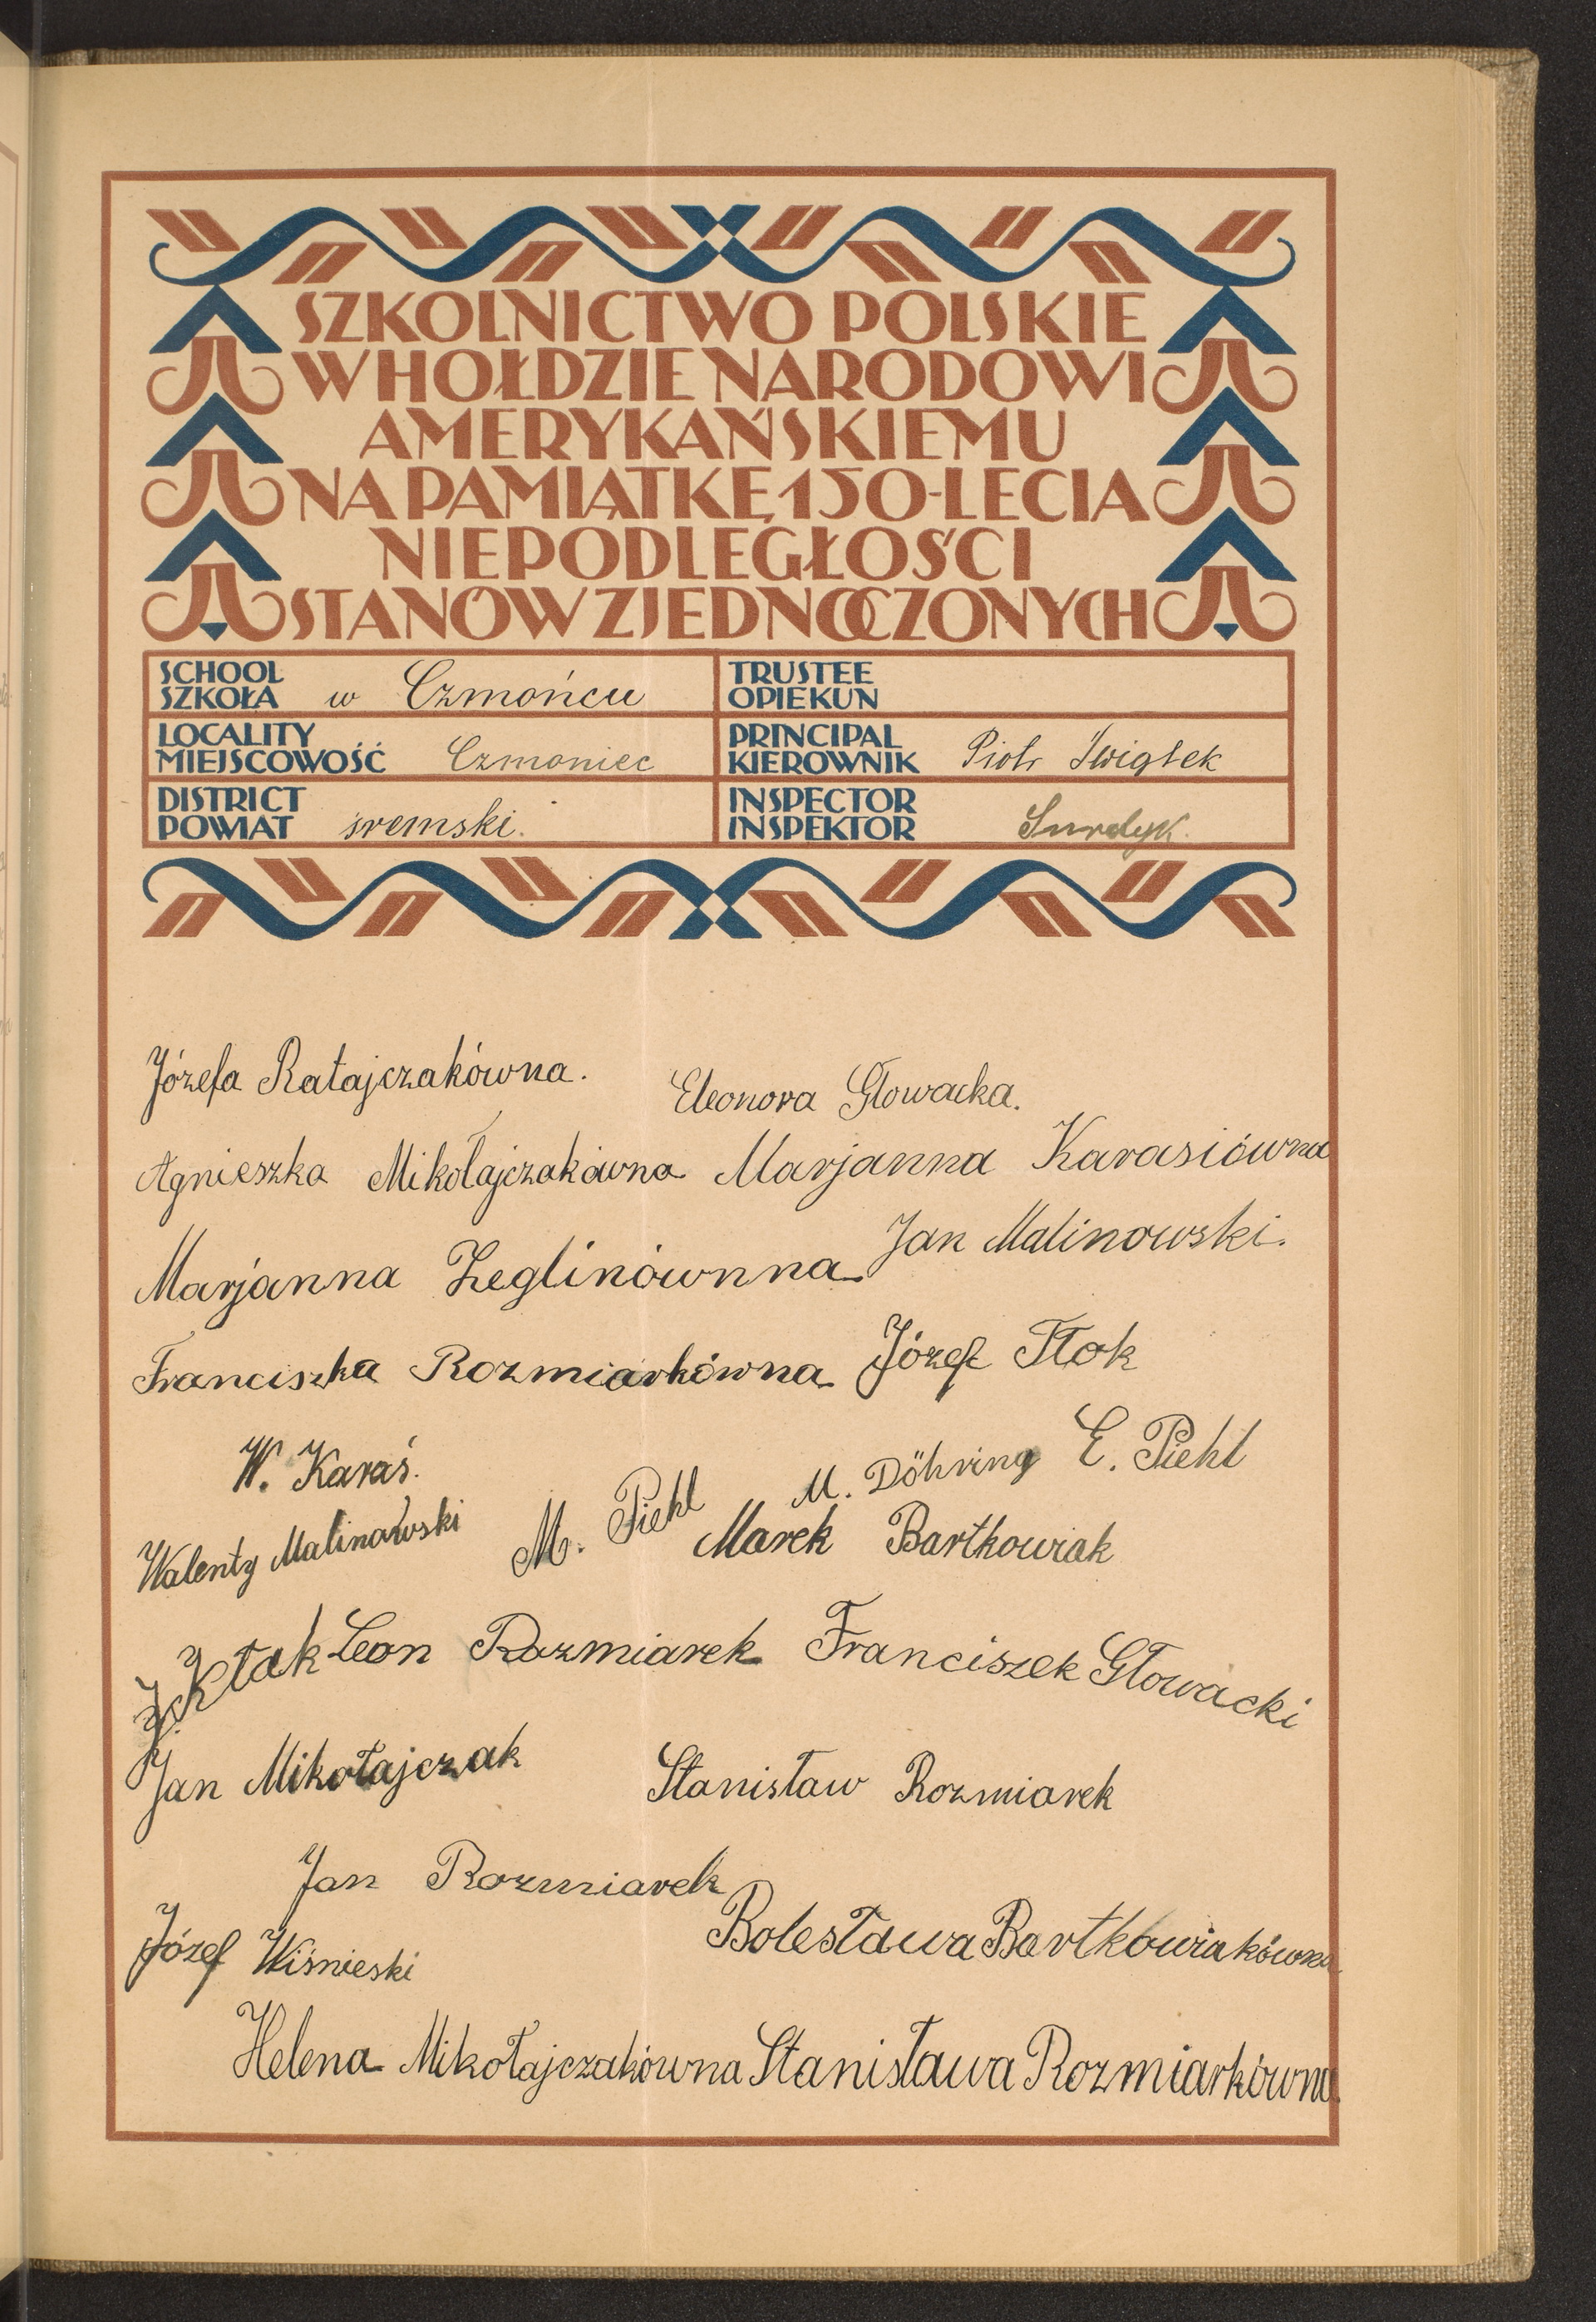 SZKOLNICTWO POLSKIE
W HOŁDZIE NARODOWI
AMERYKAŃSKIEMU
NA PAMIĄTKĘ 150-LECIA
NIEPODLEGŁOŚCI
STANÓW ZJEDNOCZONYCH
SCHOOL
SZKOŁA w Czmońcu
TRUSTEE
OPIEKUN
LOCALITY
MIEJSCOWOŚĆ Czmoniec
PRINCIPAL
KIEROWNIK Piotr Świątek
DISTRICT
POWIAT śremski.
INSPECTOR
INSPEKTOR Surdyk.
Józefa Ratajczakówna. Eleonora Głowacka.
Agnieszka Mikołajczakówna Marjanna Karasiówna
Marjanna Żeglinównna Jan Malinowski.
Franciszka Rozmiarkówna Józef Tłok
W. Karaś. M. Döhring E. Piehl
Walenty Malinowski M. Piehl Marek Bartkowiak
J. Ktak Leon Rozmiarek Franciszek Głowacki
Jan Mikołajczak Stanisław Rozmiarek
Jan Rozmiarek
Józef Wiśnieski Bolesława Bartkowiakówna
Helena Mikołajczakówna Stanisława Rozmiarkówna